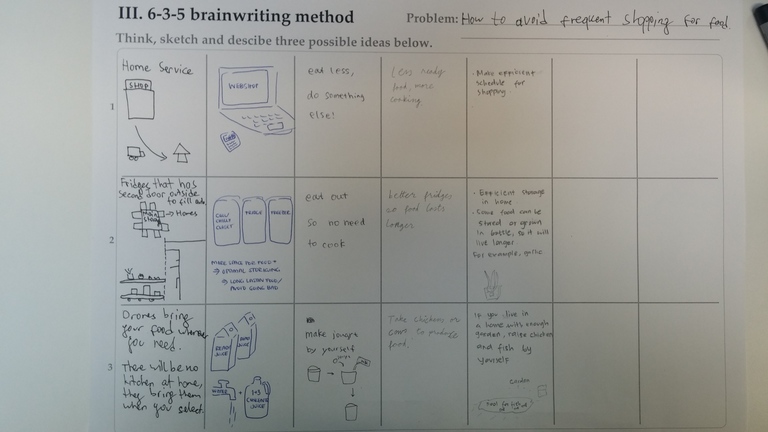 III. 6-3-5 brainwriting method
Problem: How to avoid frequent shopping for food.
Think, sketch and descibe three possible ideas below.
1
Home Service
SHOP
WEBSHOP
eat less,
do something
else!
Less ready
food, more
cooking
· Make efficient
schedule for
shopping
2
Fridges that has
second door outside
to fill
→ Homes
FRIDGE
FREEZER
MAKE SPACE FOR FOOD
→ OPTIMAL STORING
→ LONG LASTING FOOD/
AVOID GOING BAD
eat out
so no need
to cook
Better fridges
so food lasts
longer
· Efficient storage
in home
· Some food can be
stored or grown
in bottle, so it will
live longer.
For example, garlic
3
Drones bring
your food wherever
you need.
There will be no
kitchen at home,
they bring them
when you select.
READY
JUICE
JUICE
WATER
+
JUICE
make
by yourself
Take chickens or
cows to produce
food.
If you live in
a home with enough
garden, raise chicken
and fish by
yourself
Garden